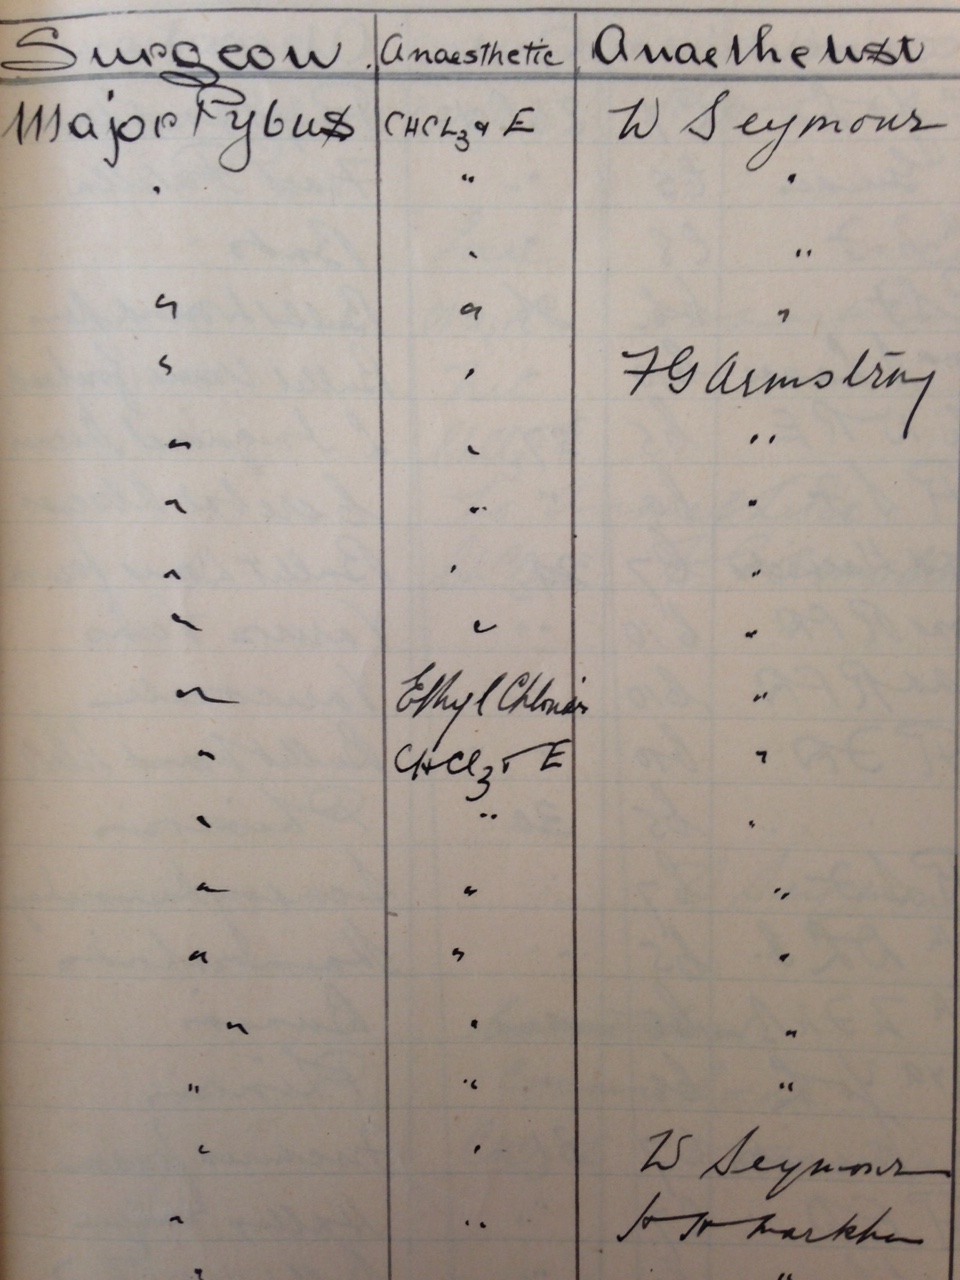 Surgeon. Anaesthetic Anaesthetist
Major Fybus CHCL3 & E W Seymour
" " "
" "
" " "
" " F G Armstrong
" " "
" " "
" " "
" " "
" Ethyl Chloride "
" CHCl3 + E "
" " "
" " "
" " "
" " "
" " "
" " W Seymour
" " H H Markham
" "